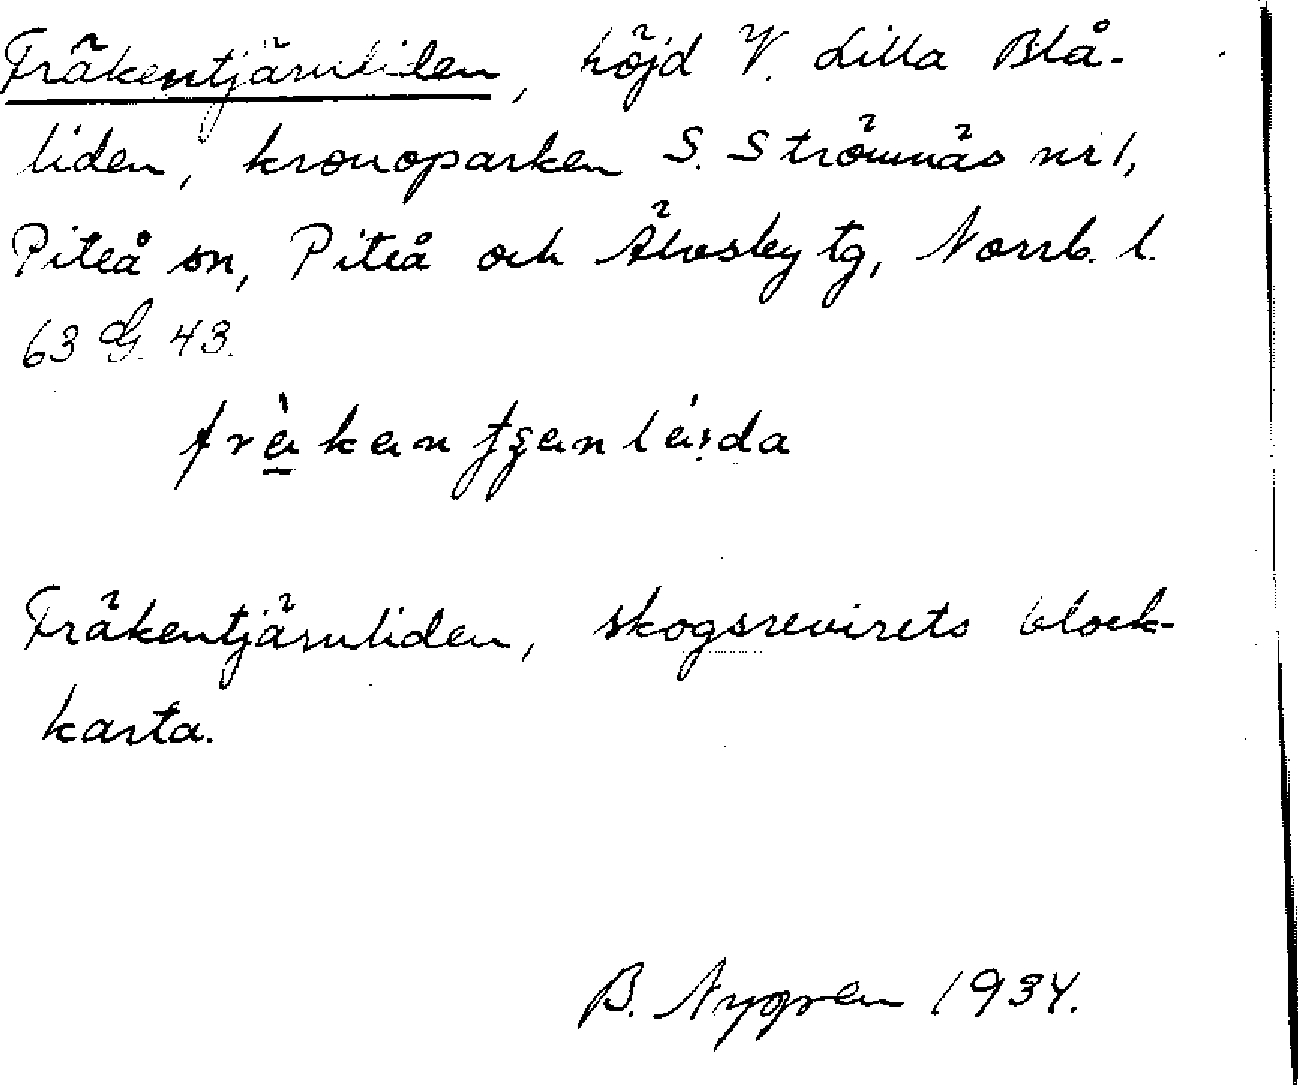 Fräkentjärnliden, höjd V. Lilla Blå-
liden, kronoparken S. Strömnäs nr 1,
Piteå sn, Piteå och Älvsby tg, Norrb. l.
63 G. 43.
Fräkentjärnliden, skogsrevirets block-
karta.
B. Nygren 1934.